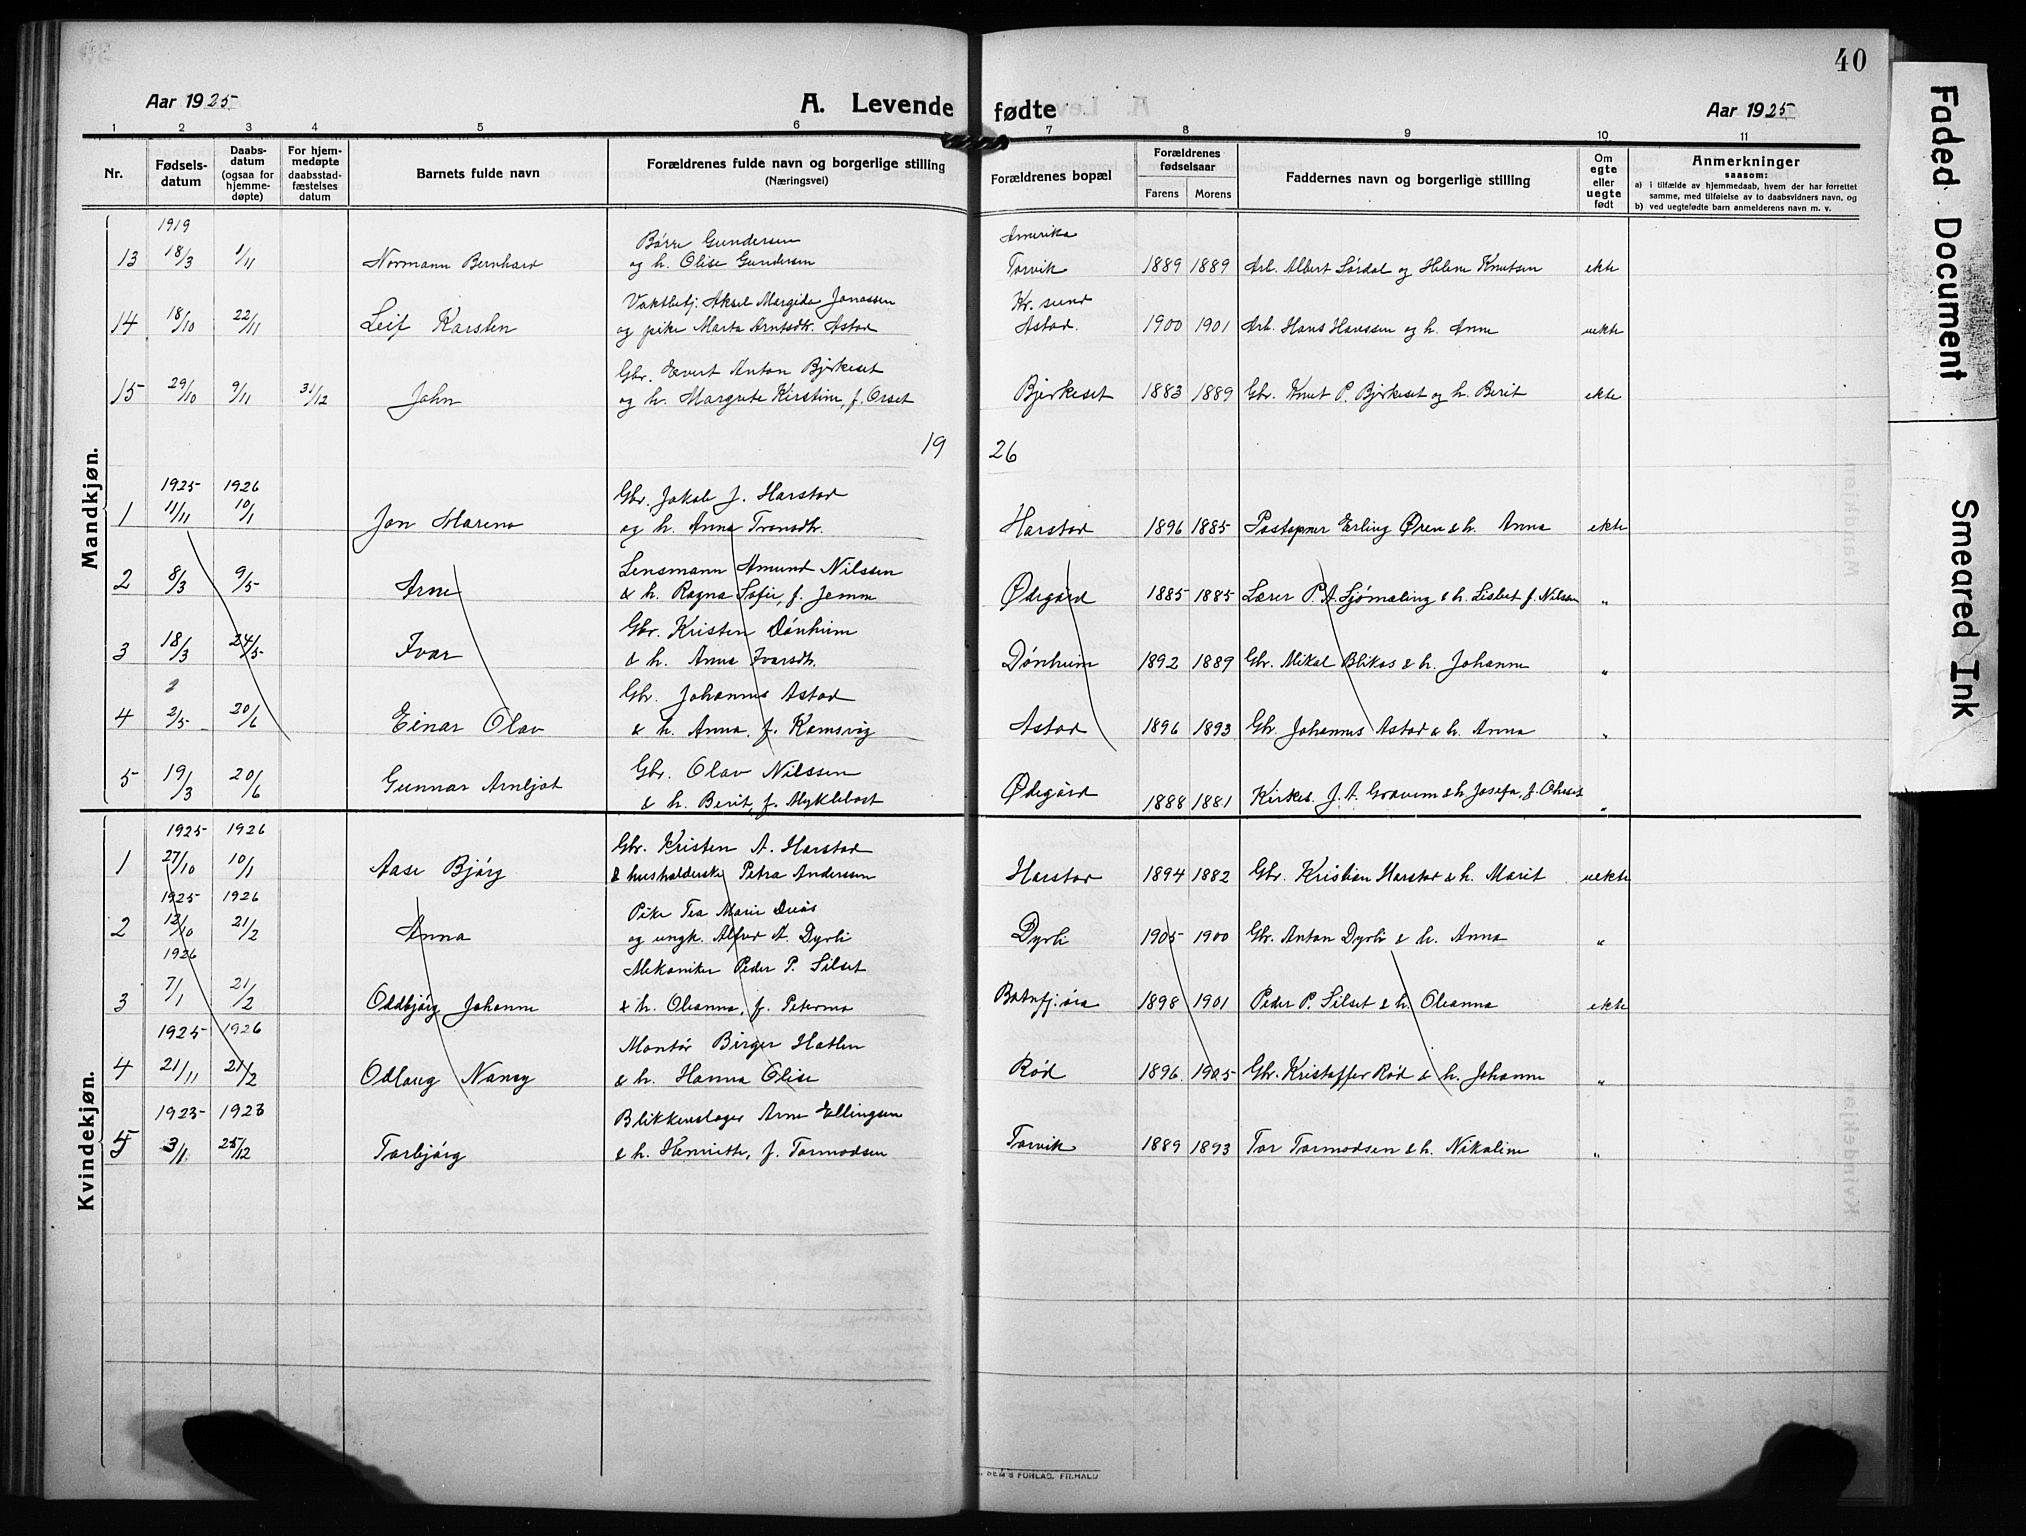 40
Aar 1925 A. Levende fødte Aar 1925
1 2 3 4 5 6 7 8 9 10 11
Nr. Fødsels-datum Daabs-datum (ogsaa for hjemme-døpte) For hjem-medøpte daabsstad-fæstelses datum Barnets fulde navn Forældrenes fulde navn og borgerlige stilling (Næringsvei) Forældrenes bopæl Forældrenes fødselsaar Farens Morens Faddernes navn og borgerlige stilling Om egte eller uegte født Anmerkninger saasom:
a) i tilfælde av hjemmedaab, hvem der har forrettet samme, med tilføielse av to daabsvidners navn, og
b) ved uegtefødte barn anmelderens navn m. v.
Mandkjøn.
1919 Børre Gundersen Amerika
13 18/3 1/11 Normann Bernhard og h. Olise Gundersen Torvik 1889 1889 Arb. Albert Sørdal og Helene Knutsen ekte
Vaktbetj. Aksel Margido Jonassen Kr. sund
14 18/10 22/11 Leif Karsten og pike Marta Arntsdtr. Astad Astad. 1900 1901 Arb. Hans Hanssen og h. Anne uekte
Gbr. Evert Anton Bjerkeset
15 29/10 9/11 31/12 John og h. Margrete Kirstine, f. Orset Bjerkeset 1883 1889 Gbr. Knut P. Bjerkeset og h. Berit ekte
19 26
1925 1926 Gbr. Jakob J. Harstad
1 11/11 10/1 Jon Mareno og h. Anna Tronsdtr. Harstad 1896 1885 Postopner Erling Øren & h. Anna ekte
Lensmann Amund Nilssen
2 8/3 9/5 Arne & h. Ragna Sofie, f. Jemne Ødegård 1885 1885 Lærer P. A. Sjømæling & h. Lisbet f. Nilssen "
Gbr. Kristen Dønheim
3 18/3 24/5 Ivar & h. Anna Ivarsdtr. Dønheim 1892 1889 Gbr. Mikal Blikås & h. Johanne "
Gbr. Johannes Astad
4 2/5 20/6 Einar Olav & h. Anna, f. Ramsvig Astad 1896 1893 Gbr. Johannes Astad & h. Anna "
Gbr. Olav Nilssen
5 19/3 20/6 Gunnar Arnljot & h. Berit, f. Myklebost Ødegård 1888 1881 Kirkes. J. A. Gravem & h. Josefa, f. "
Kvindekjøn.
1925 1926 Gbr. Kristen A. Harstad
1 27/10 10/1 Aase Bjørg & husholderske Petra Anderssen Harstad 1894 1882 Gbr. Kristian Harstad & h. Marit uekte
1925 1926 Pike Tea Marie
2 12/10 21/2 Anna og ungk. Alfred A. Dyrli Dyrli 1905 1900 Gbr. Anton Dyrli & h. Anna "
1926 Mekaniker Peder P. Silset
3 7/1 21/2 Oddbjørg Johanne & h. Oleanna, f. Peterma Batnfj.øra 1898 1901 Peder P. Silset & h. Oleanna ekte
1925 1926 Montør Birger Hatlen
4 21/11 21/2 Odlaug Nancy & h. Hanna Olise Rød 1896 1905 Gbr. Kristoffer Rød & h. Johanne "
1923 1923 Blikkenslager Arne Ellingsen
5 3/1 25/12 Torbjørg & h. Henriette, f. Tormodsen Torvik 1889 1893 Tor Tormodsen & h. Nikoline "
DEM'S FORLAG. FR.HALD
Faded Document
Smeared Ink